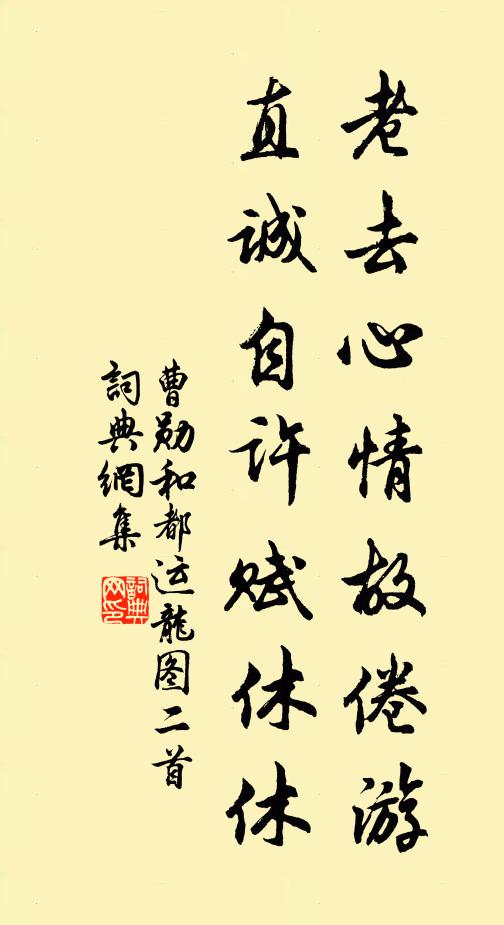 老去心情故倦游
直诚自许赋休休
曹勋和都运龍图二首
詞典網集
詞典網印